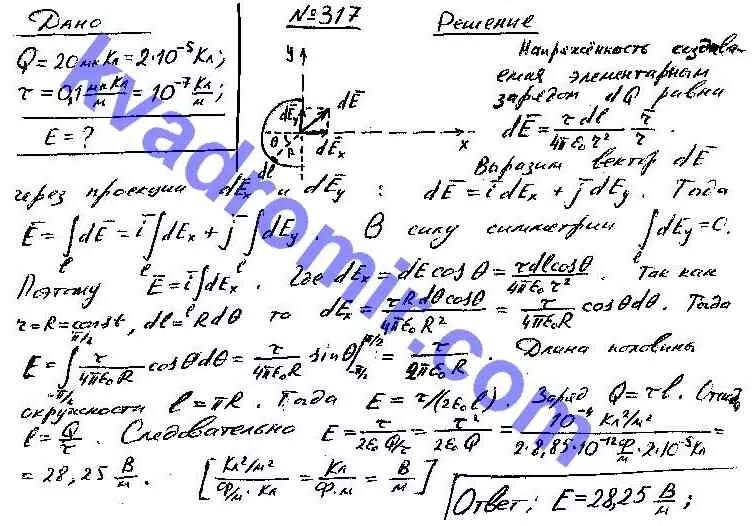 Дано
№317
Решение
Q = 20 мкКл = 2·10⁻⁵ Кл;
τ = 0,1 мкКл/м = 10⁻⁷ Кл/м;
E = ?
y
dE̅
dE̅y
dE̅x
θ
R
dl
x
Напряжённость создава-
емая элементарным
зарядом dQ равна
dE̅ = τ dl/(4πε₀ r²) · r̅/r .
Выразим вектор dE̅
через проекции dE̅x и dE̅y : dE̅ = i̅ dEx + j̅ dEy. Тогда
E̅ = ∫l dE̅ = i̅ ∫l dEx + j̅ ∫l dEy . В силу симметрии ∫l dEy = 0.
Поэтому E̅ = i̅ ∫l dEx . Где dEx = dE cosθ = τ dl cosθ/(4πε₀ r²) . Так как
r = R = const, dl = R dθ то dEx = τ R dθ cosθ/(4πε₀ R²) = τ/(4πε₀ R) cosθ dθ . Тогда
E = ∫_{-π/2}^{π/2} τ/(4πε₀ R) cosθ dθ = τ/(4πε₀ R) sinθ |_{-π/2}^{π/2} = τ/(2πε₀ R) . Длина половины
окружности l = πR . Тогда E = τ/(2ε₀ l) . Заряд Q = τl . Откуда
l = Q/τ . Следовательно E = τ/(2ε₀ Q/τ) = τ²/(2ε₀ Q) = 10⁻⁴ Кл²/м²/(2·8,85·10⁻¹² Ф/м · 2·10⁻⁵ Кл) =
= 28,25 В/м . [Кл²/м²/(Ф/м · Кл) = Кл/(Ф·м) = В/м]
Ответ: E = 28,25 В/м ;
kvadromir.com